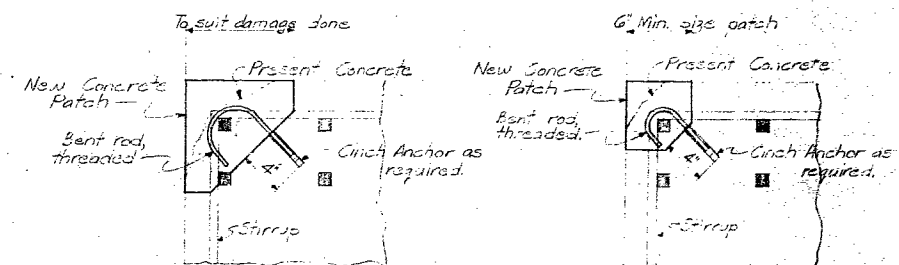 To suit damage done
New Concrete
Patch
Present Concrete
Bent rod,
threaded
Cinch Anchor as
required.
4"
Stirrup
6" Min. size patch
New Concrete
Patch
Present Concrete
Bent rod,
threaded.
Cinch Anchor as
required.
4"
Stirrup